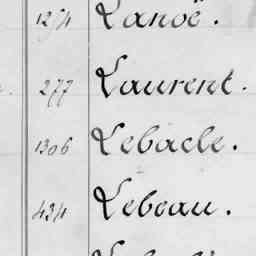 1254 Lanoë.
277 Laurent.
1306 Lebacle.
434 Lebeau.